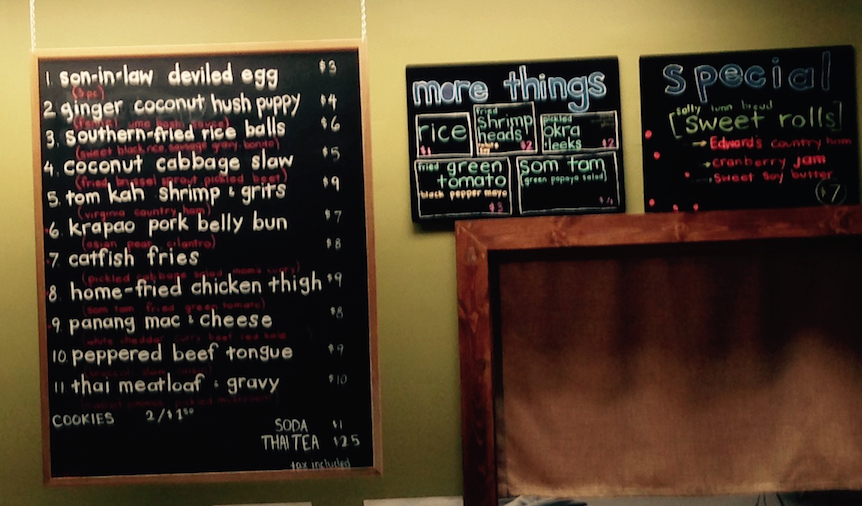 1. son-in-law deviled egg $3
(3 pc)
2. ginger coconut hush puppy $4
(fennel ume basil sauce)
3. southern-fried rice balls $6
(sweet black rice, sausage gravy, bonito)
4. coconut cabbage slaw $5
(fried brussel sprout pickled beet)
5. tom kah shrimp & grits $9
(virginia country ham)
6. krapao pork belly bun $7
(asian pear, cilantro)
7. catfish fries $8
(pickled cabbage salad, mama curry)
8. home-fried chicken thigh $9
(som tam fried green tomato)
9. panang mac & cheese $8
white cheddar curry beef
10. peppered beef tongue $9
11. thai meatloaf & gravy $10
COOKIES 2/$1.50
SODA $1
THAI TEA $2.5
tax included
more things
rice
$1
fried
shrimp
heads
$2
pickled
okra
leeks
$2
fried green
tomato
black pepper mayo
$3
som tam
(green papaya salad)
$4
special
sally lunn bread
[sweet rolls]
→ Edward's country ham
→ cranberry jam
→ sweet soy butter
$7